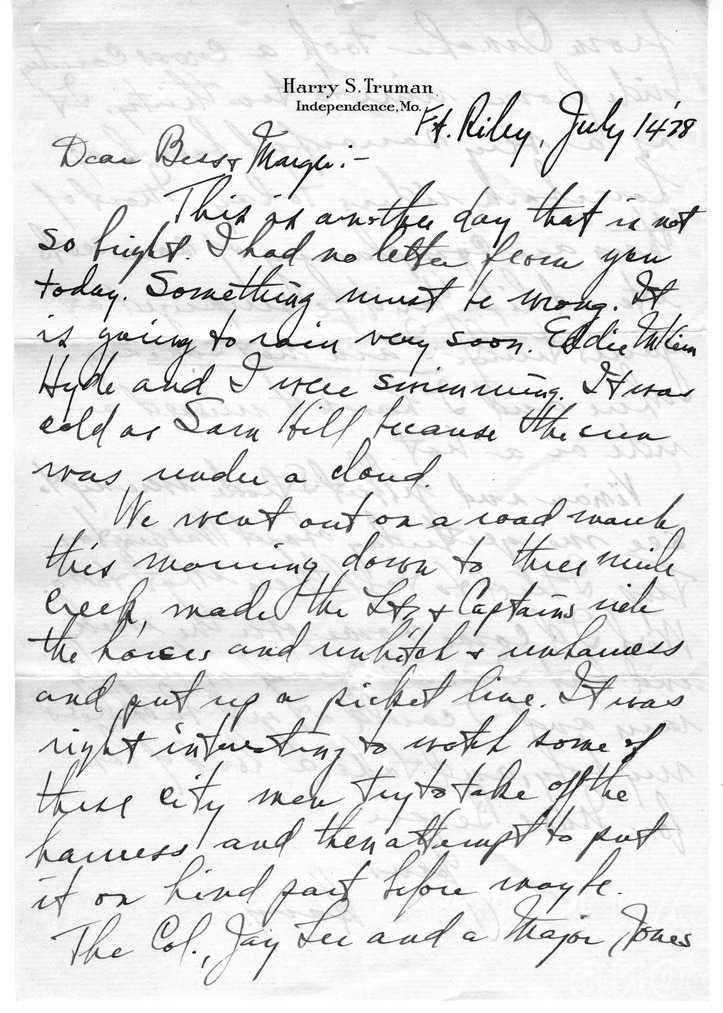 Harry S. Truman
Independence, Mo.
Ft. Riley, July 14 '28
Dear Bess & Margie:-
This is another day that is not
so bright. I had no letter from you
today. Something must be wrong. It
is going to rain very soon. Eddie McKim
Hyde and I were swimming. It was
cold as Sam Hill because the sun
was under a cloud.
We went out on a road march
this morning down to three mile
creek, made the Lts & Captains ride
the horses and unhitch & unharness
and put up a picket line. It was
right interesting to watch some of
these city men try to take off the
harness and then attempt to put
it on hind part before maybe.
The Col., Jay Lee and a Major Jones